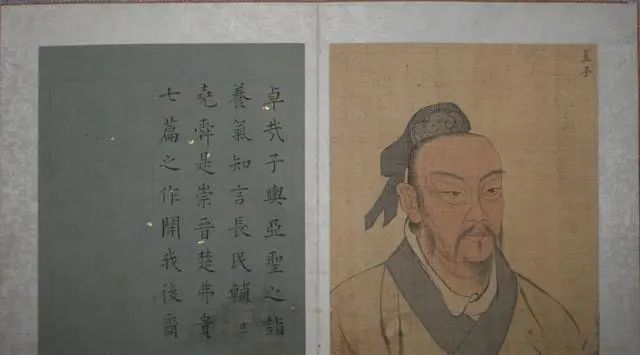 孟子
卓哉子輿亞聖之詣
養氣知言長民輔世
堯舜是崇晉楚弗貴
七篇之作開我後裔